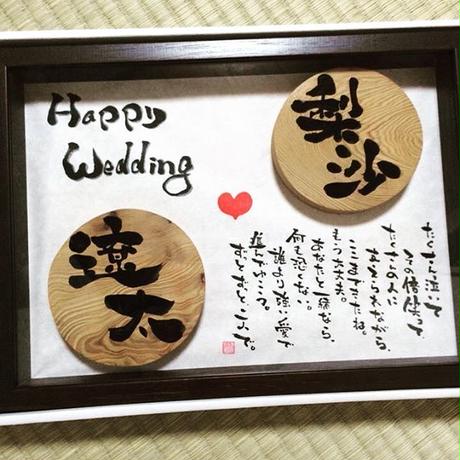 Happy
Wedding
梨沙
遼太
たくさん泣いて
その倍笑って
たくさんの人に
支えられながら
ここまできたね。
もう大丈夫。
あなたと一緒なら、
何も恐くない。
誰より強い愛で
進んでゆこう。